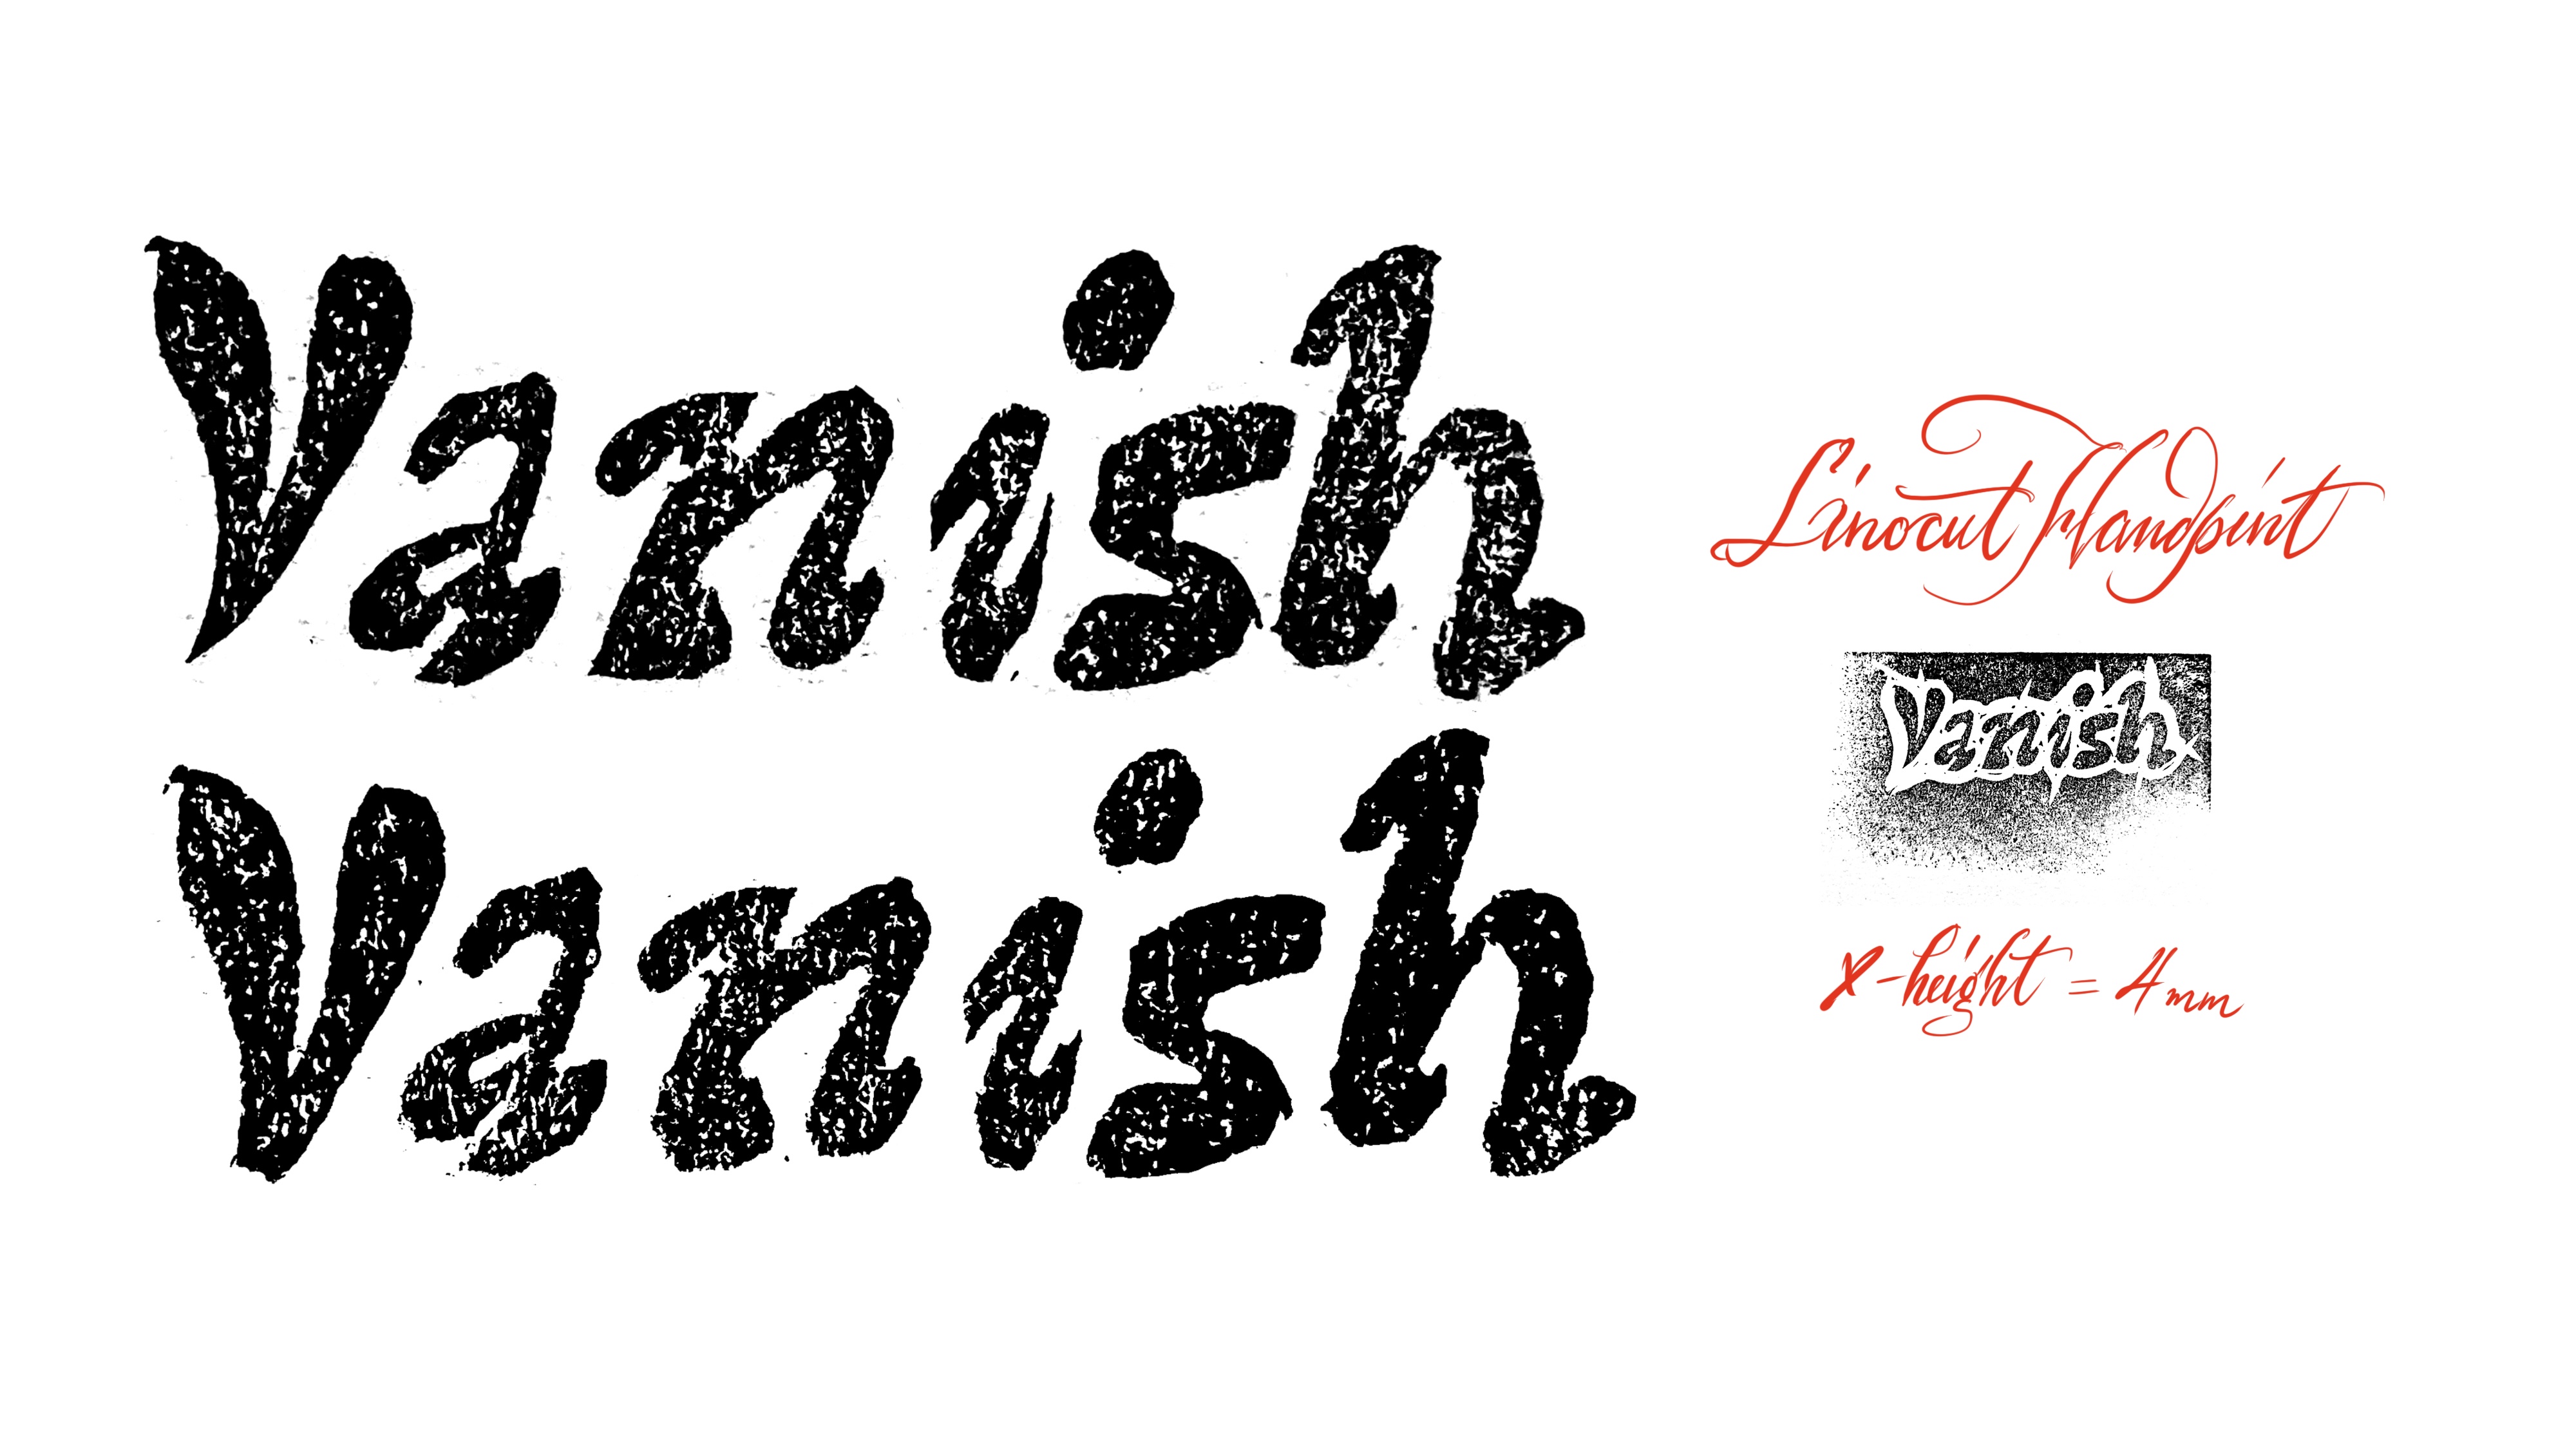 Vanish
Vanish
Linocut Handpint
Vanish
x-height = 4mm